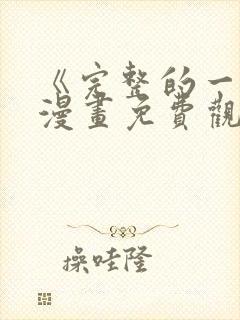 《完整的一
漫畫免費觀
操哇隆